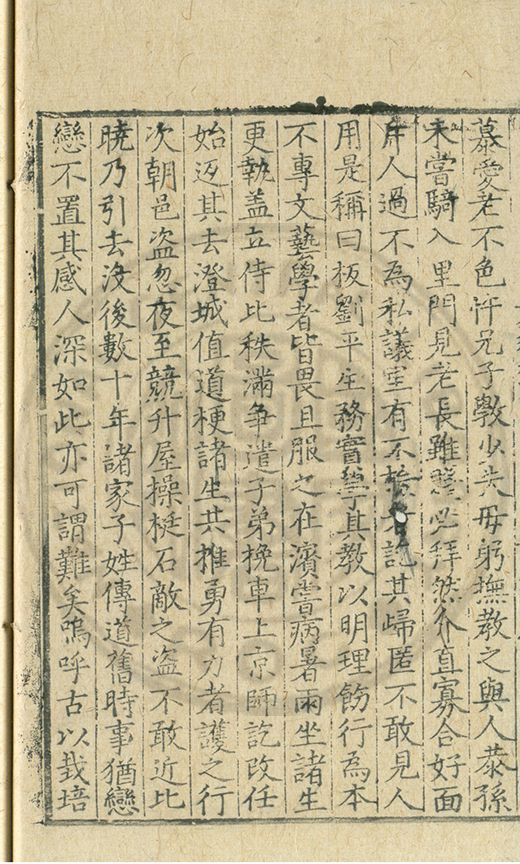 慕愛老不色忤兄子斆少失母躬撫教之與人恭孫
未嘗騎入里門見老長雖必拜然介直寡合好面
斥人過不為私議室有不者訖其歸匿不敢見人
用是稱曰板劉平生務實學其教以明理飭行為本
不專文藝學者皆畏且服之在濱嘗病暑雨坐諸生
更執盖立侍比秩滿爭遣子弟挽車上京師訖改任
始返其去澄城值道梗諸生共推勇有力者護之行
次朝邑盜忽夜至競升屋操梃石敵之盜不敢近比
曉乃引去沒後數十年諸家子姓傳道舊時事猶戀
戀不置其感人深如此亦可謂難矣嗚呼古以栽培